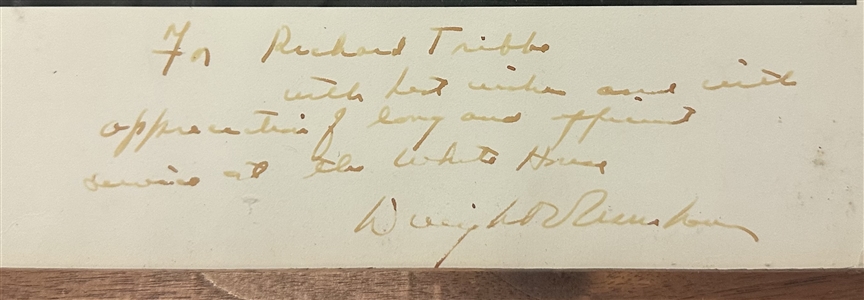 For Richard Tribbe
with best wishes and with
appreciation of long and efficient
service at the White House
Dwight D Eisenhower